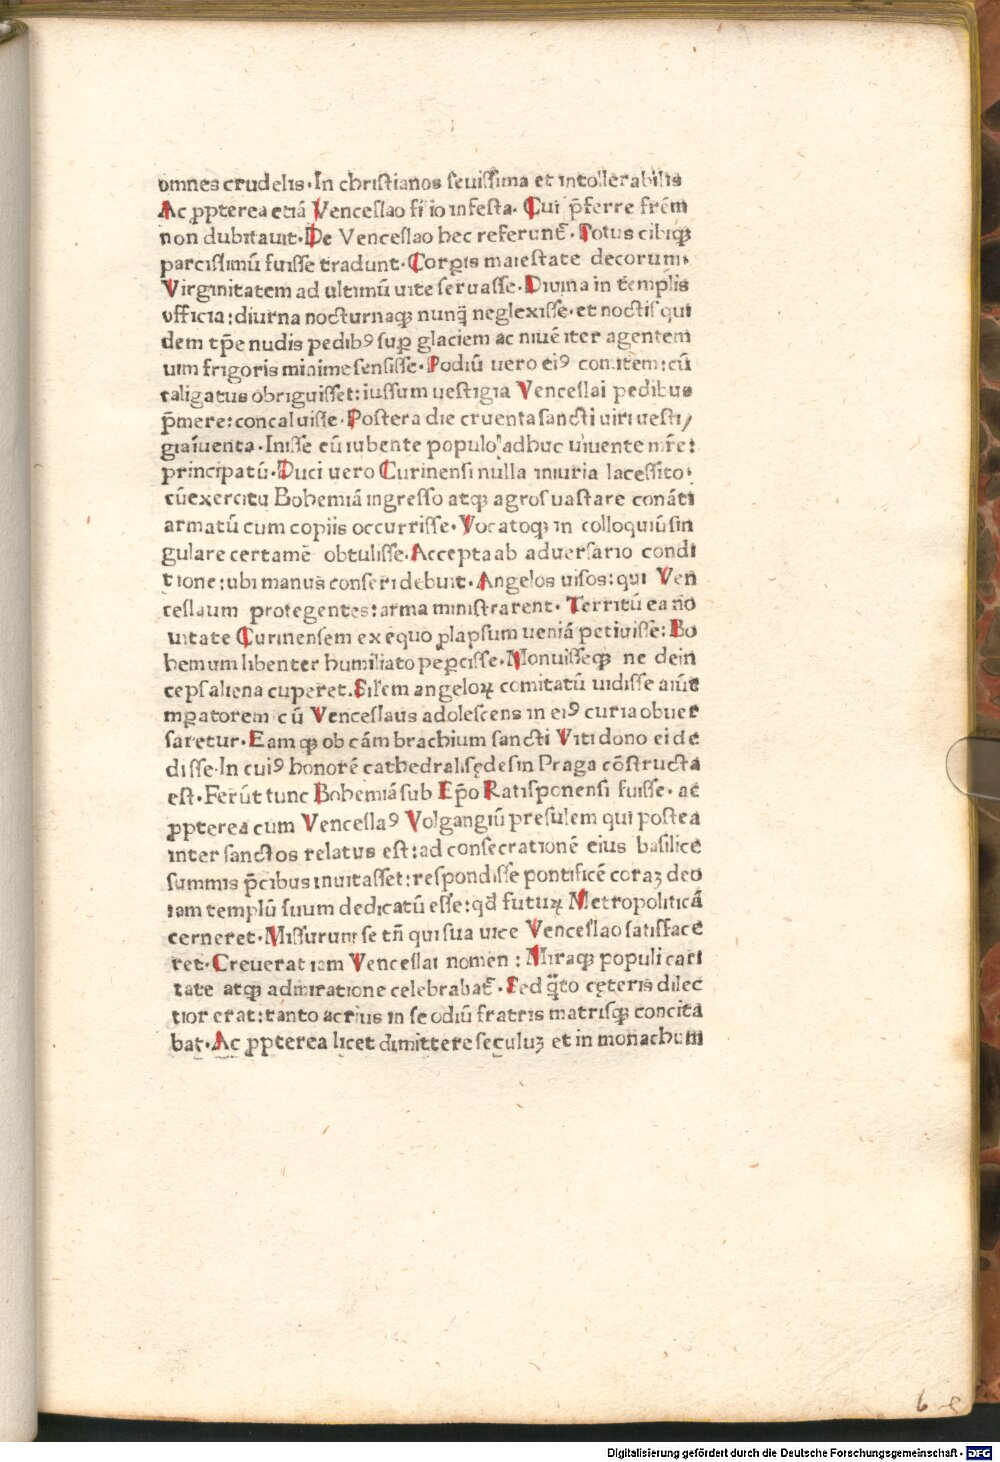 omnes crudelis·In christianos seuissima et intollerabilis
Ac ꝓpterea etiā Venceslao filio infesta· Cui p̄ferre frēm
non dubitauit·De Venceslao hec referunt̄·Potus cibiqꝫ
parcissimū fuisse tradunt·Corꝑis maiestate decorum·
Virginitatem ad ultimū uite seruasse·Diuina in templis
officia:diurna nocturnaqꝫ nunq̄ neglexisse·et noctis qui
dem tp̄e nudis pedibꝰ suꝑ glaciem ac niuē iter agentem
uim frigoris minime sensisse·Podiū uero eiꝰ comitem:cū
caligatus obriguisset:iussum uestigia Venceslai pedibus
p̄mere:concaluisse·Postera die cruenta sancti uiri uesti/
gia iuenta·Inisse eū iubente populo adhuc uiuente mr̄e:
principatū·Duci uero Curinensi nulla iniuria lacessito·
cū exercitu Bohemiā ingresso atqꝫ agros uastare conāti
armatū cum copiis occurrisse·Vocatoqꝫ in colloquiū sin
gulare certamē obtulisse·Accepta ab aduersario condi
tione:ubi manus conseri debuit·Angelos uisos:qui Ven
ceslaum protegentes:arma ministrarent·Territū ea no
uitate Curinensem ex equo ꝓlapsum ueniā petiuisse:Bo
hemum libenter humiliato peꝑcisse·Monuisseqꝫ ne dein
ceps aliena cuperet.Eidem angeloꝝ comitatū uidisse aiūt
mꝑatorem cū Venceslaus adolescens in eiꝰ curia obuer
saretur·Eamqꝫ ob cām brachium sancti Viti dono ei de
disse·In cuiꝰ honorē cathedralis sędes in Praga cōstructa
est·Ferūt tunc Bohemiā sub Ep̄o Ratisponensi fuisse· ac
ꝓpterea cum Venceslaꝰ Volgangiū presulem qui postea
inter sanctos relatus est:ad consecrationē eius basilice
summis p̄cibus inuitasset:respondisse pontificē coraꝫ deo
iam templū suum dedicatū esse:qd̄ futuꝝ Metropoliticā
cerneret·Missurum se tn̄ qui sua uice Venceslao satisface
ret·Creuerat iam Venceslai nomen:Miraqꝫ populi cari
tate atqꝫ admiratione celebrabat̄·Sed q̄to cęteris dilec
tior erat:tanto acrius in se odiū fratris matrisqꝫ concita
bat·Ac ꝓpterea licet dimittere seculuꝫ et in monachum
6
Digitalisierung gefördert durch die Deutsche Forschungsgemeinschaft - DFG